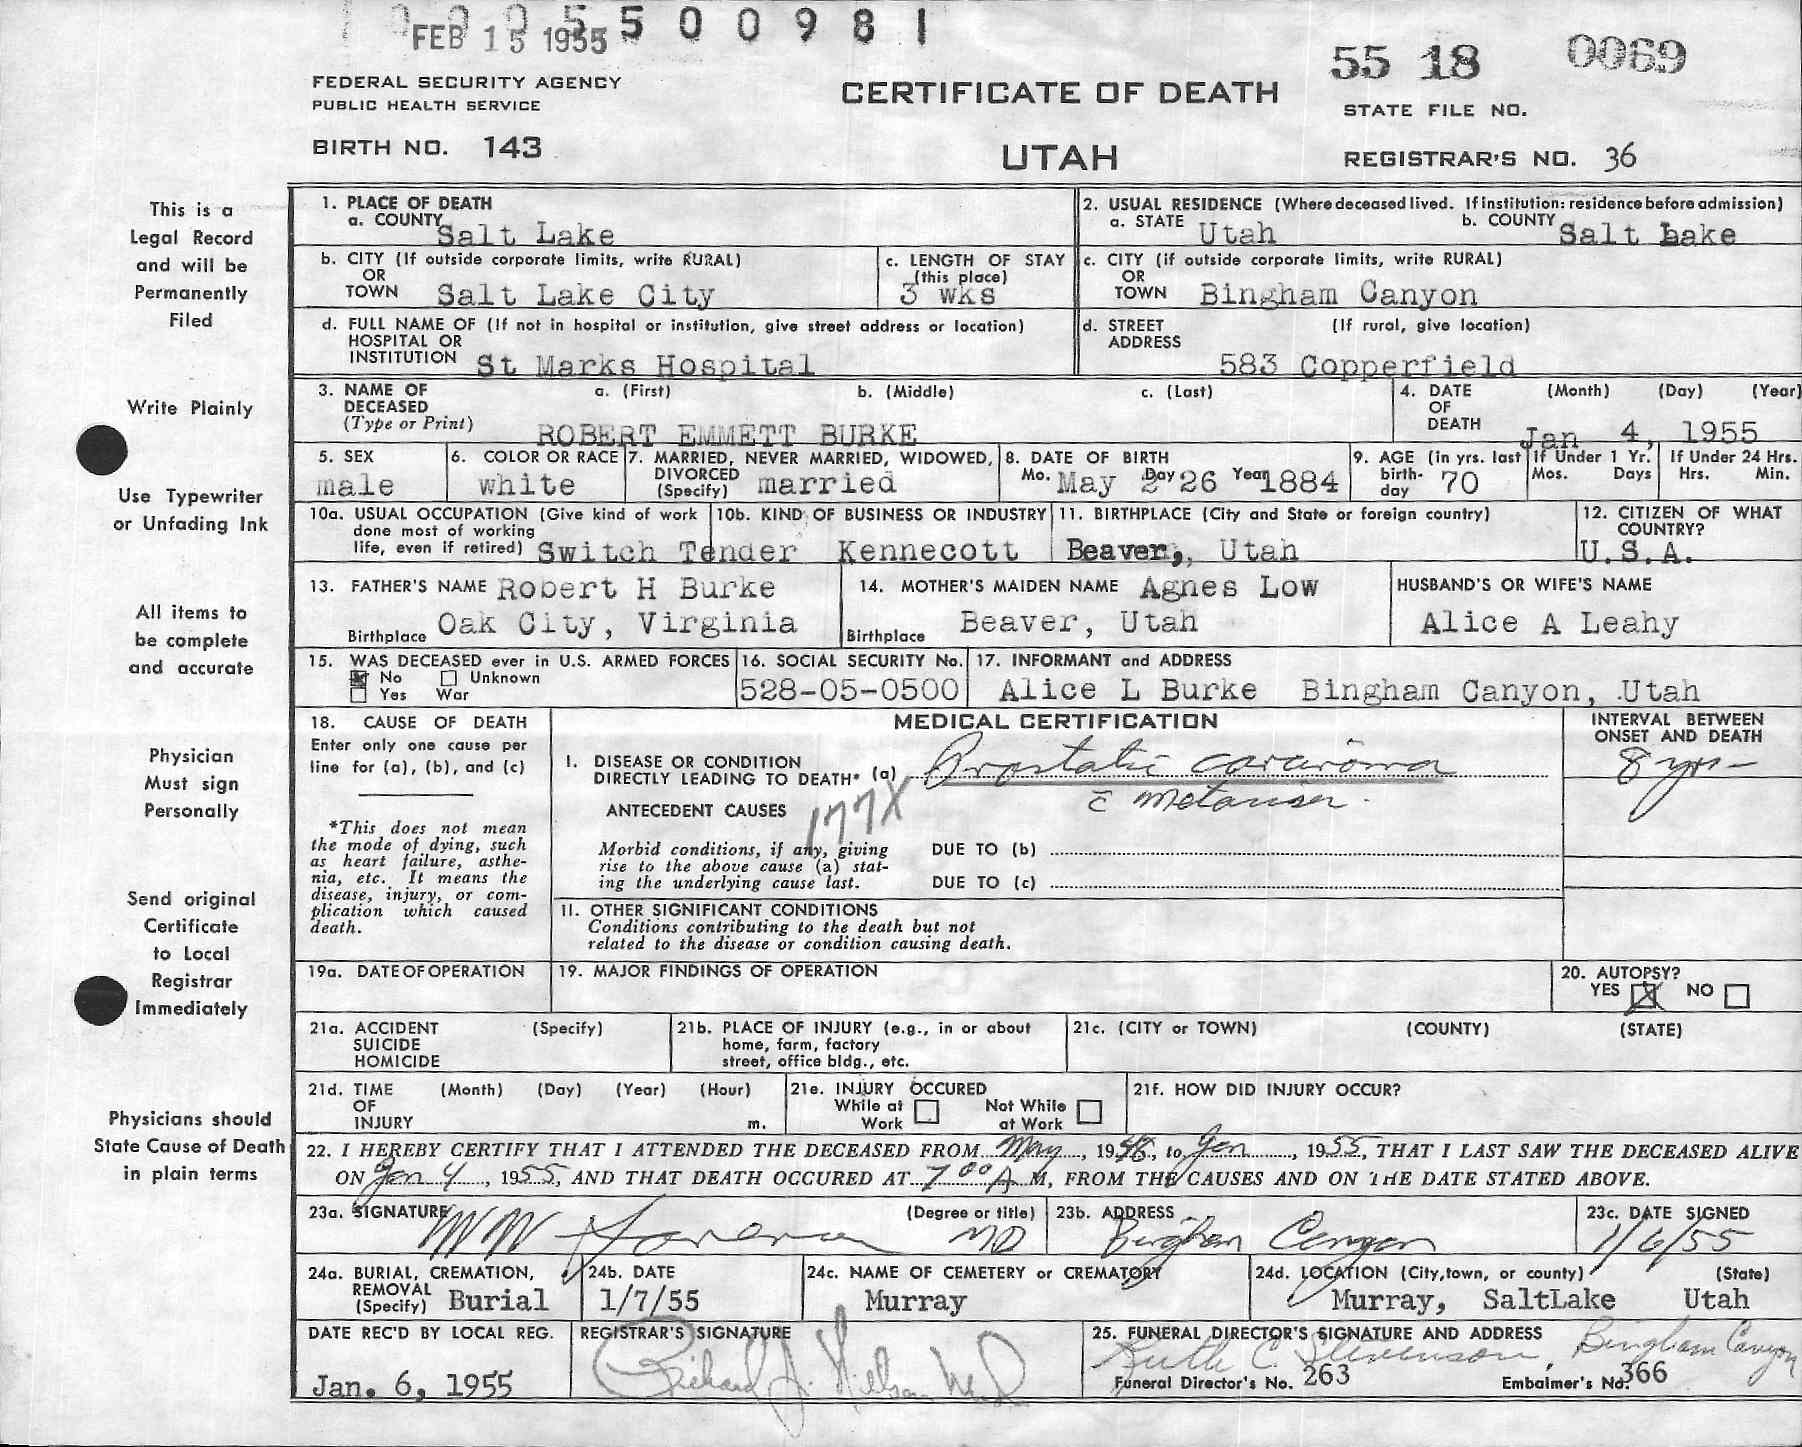 FEB 15 1955 5 0 0 9 8 1
55 18 0069
FEDERAL SECURITY AGENCY
PUBLIC HEALTH SERVICE
CERTIFICATE OF DEATH
STATE FILE NO.
BIRTH NO. 143
UTAH
REGISTRAR'S NO. 36
This is a
Legal Record
and will be
Permanently
Filed
Write Plainly
Use Typewriter
or Unfading Ink
All items to
be complete
and accurate
Physician
Must sign
Personally
Send original
Certificate
to Local
Registrar
Immediately
Physicians should
State Cause of Death
in plain terms
1. PLACE OF DEATH
a. COUNTY Salt Lake
2. USUAL RESIDENCE (Where deceased lived. If institution: residence before admission)
a. STATE Utah b. COUNTY Salt Lake
b. CITY (If outside corporate limits, write RURAL)
OR
TOWN Salt Lake City
c. LENGTH OF STAY
(this place)
3 wks
c. CITY (if outside corporate limits, write RURAL)
OR
TOWN Bingham Canyon
d. FULL NAME OF (If not in hospital or institution, give street address or location)
HOSPITAL OR
INSTITUTION St Marks Hospital
d. STREET (If rural, give location)
ADDRESS
583 Copperfield
3. NAME OF a. (First) b. (Middle) c. (Last)
DECEASED
(Type or Print) ROBERT EMMETT BURKE
4. DATE (Month) (Day) (Year)
OF
DEATH Jan 4, 1955
5. SEX
male
6. COLOR OR RACE
white
7. MARRIED, NEVER MARRIED, WIDOWED,
DIVORCED
(Specify) married
8. DATE OF BIRTH
Mo. May Day 26 Year 1884
9. AGE (in yrs. last
birth-
day 70
If Under 1 Yr.
Mos. Days
If Under 24 Hrs.
Hrs. Min.
10a. USUAL OCCUPATION (Give kind of work
done most of working
life, even if retired) Switch Tender
10b. KIND OF BUSINESS OR INDUSTRY
Kennecott
11. BIRTHPLACE (City and State or foreign country)
Beaver, Utah
12. CITIZEN OF WHAT
COUNTRY?
U.S.A.
13. FATHER'S NAME Robert H Burke
Birthplace Oak City, Virginia
14. MOTHER'S MAIDEN NAME Agnes Low
Birthplace Beaver, Utah
HUSBAND'S OR WIFE'S NAME
Alice A Leahy
15. WAS DECEASED ever in U.S. ARMED FORCES
No Unknown
Yes War
16. SOCIAL SECURITY No.
528-05-0500
17. INFORMANT and ADDRESS
Alice L Burke Bingham Canyon, Utah
18. CAUSE OF DEATH
Enter only one cause per
line for (a), (b), and (c)
*This does not mean
the mode of dying, such
as heart failure, asthe-
nia, etc. It means the
disease, injury, or com-
plication which caused
death.
MEDICAL CERTIFICATION
INTERVAL BETWEEN
ONSET AND DEATH
I. DISEASE OR CONDITION
DIRECTLY LEADING TO DEATH* (a) Prostatic carcinoma
8 yrs
ANTECEDENT CAUSES
177X
Morbid conditions, if any, giving
rise to the above cause (a) stat-
ing the underlying cause last.
DUE TO (b)
DUE TO (c)
II. OTHER SIGNIFICANT CONDITIONS
Conditions contributing to the death but not
related to the disease or condition causing death.
19a. DATE OF OPERATION
19. MAJOR FINDINGS OF OPERATION
20. AUTOPSY?
YES NO
21a. ACCIDENT (Specify)
SUICIDE
HOMICIDE
21b. PLACE OF INJURY (e.g., in or about
home, farm, factory
street, office bldg., etc.
21c. (CITY or TOWN) (COUNTY) (STATE)
21d. TIME (Month) (Day) (Year) (Hour)
OF
INJURY m.
21e. INJURY OCCURED
While at Not While
Work at Work
21f. HOW DID INJURY OCCUR?
22. I HEREBY CERTIFY THAT I ATTENDED THE DECEASED FROM May, 1948, to Jan, 1955, THAT I LAST SAW THE DECEASED ALIVE
ON Jan 4, 1955, AND THAT DEATH OCCURED AT 7 00 A M, FROM THE CAUSES AND ON THE DATE STATED ABOVE.
23a. SIGNATURE (Degree or title)
MD
23b. ADDRESS
Bingham Canyon
23c. DATE SIGNED
1/6/55
24a. BURIAL, CREMATION,
REMOVAL
(Specify) Burial
24b. DATE
1/7/55
24c. NAME OF CEMETERY or CREMATORY
Murray
24d. LOCATION (City, town, or county) (State)
Murray, SaltLake Utah
DATE REC'D BY LOCAL REG.
Jan. 6, 1955
REGISTRAR'S SIGNATURE
Richard J. Nielsen
25. FUNERAL DIRECTOR'S SIGNATURE AND ADDRESS
Ruth C. Stevenson, Bingham Canyon
Funeral Director's No. 263 Embalmer's No. 366